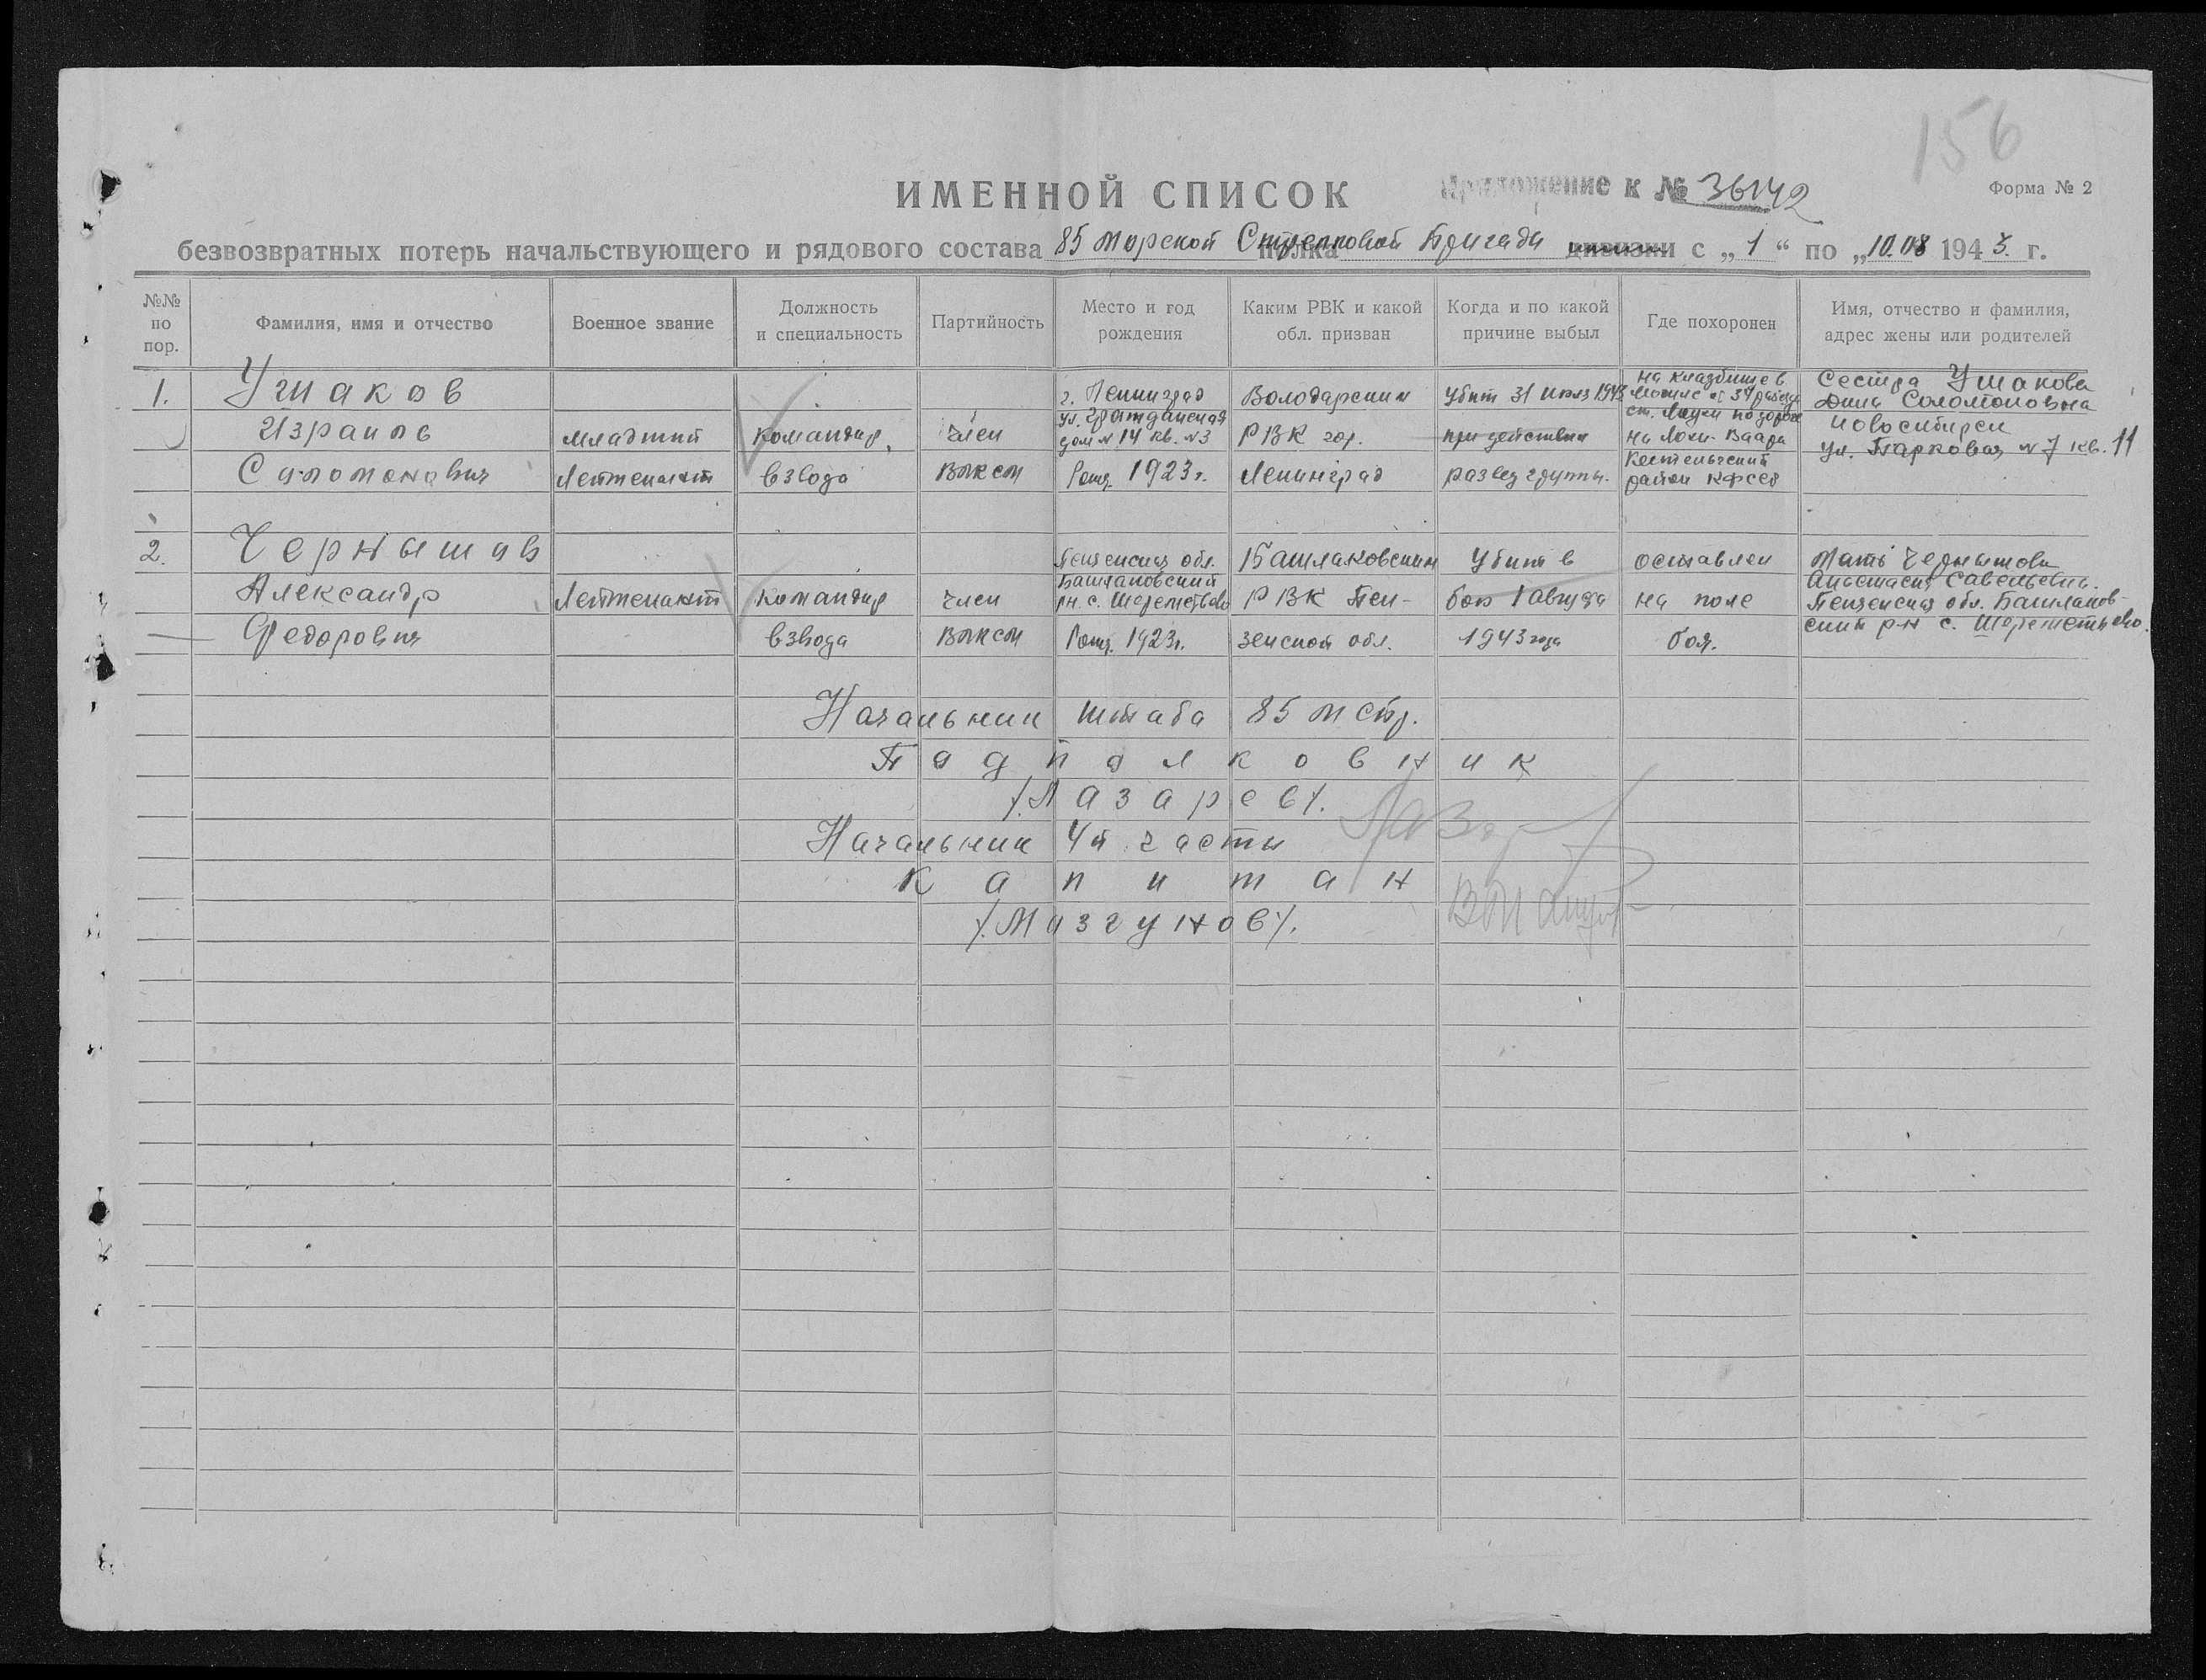 156
ИМЕННОЙ СПИСОК
Приложение к № 36142
Форма № 2
безвозвратных потерь начальствующего и рядового состава 85 морской Стрелковой Бригады полка дивизии с „ 1 “ по „ 10.08 1943 г.
№№ по пор.
Фамилия, имя и отчество
Военное звание
Должность и специальность
Партийность
Место и год рождения
Каким РВК и какой обл. призван
Когда и по какой причине выбыл
Где похоронен
Имя, отчество и фамилия, адрес жены или родителей
1.
Ушаков
Израиль
Соломонович
младший
Лейтенант
командир
взвода
член
ВЛКСМ
г. Ленинград
ул. Гражданская
дом № 14 кв. №3
Рожд. 1923 г.
Володарским
РВК гор.
Ленинград
Убит 31 июля 1943
при действии
развед группы.
на кладбище в
ст. Лоухи по дороге
на Локи-Ваара
Кестеньгский
район КФССР
Сестра Ушакова
Дина Соломоновна
Новосибирск
ул. Парковая № 7 кв. 11
2.
Чернышов
Александр
Федорович
Лейтенант
командир
взвода
член
ВЛКСМ
Пензенская обл.
Башмаковский
рн. с. Шереметьево
Рожд. 1923г.
Башмаковским
РВК Пен-
зенской обл.
Убит в
бою 1 августа
1943 года
оставлен
на поле
боя.
Мать Чернышова
Анастасия Савельевна.
Пензенская обл. Башмаков-
ский р-н с. Шереметьево.
Начальник штаба 85 мстр.
Подполковник
/Лазарев/.
Начальник 4й части
Капитан
/Мазгунов/.